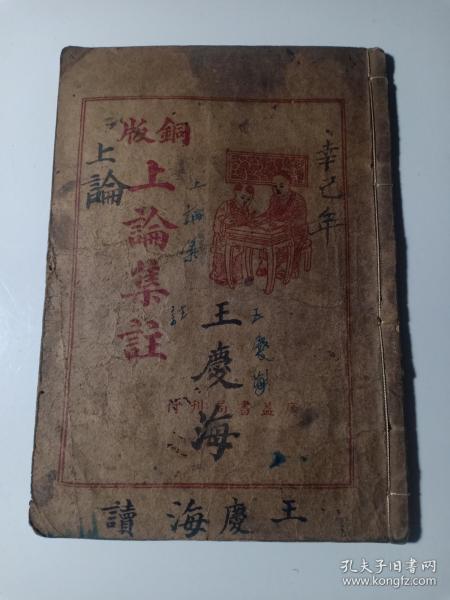 辛己年
銅版
上論集註
上論
上論集註
王慶海
王慶海
益書局刊行
王慶海讀
孔夫子旧书网
www.kongfz.com